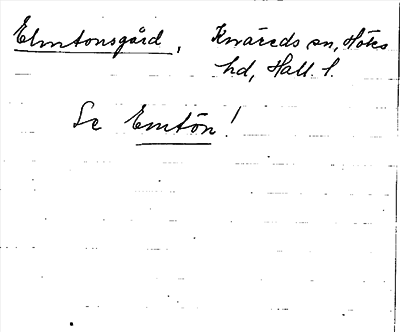 Elmtonsgård, Knäreds sn, Höks
hd, Hall. l.
Se Emtön!